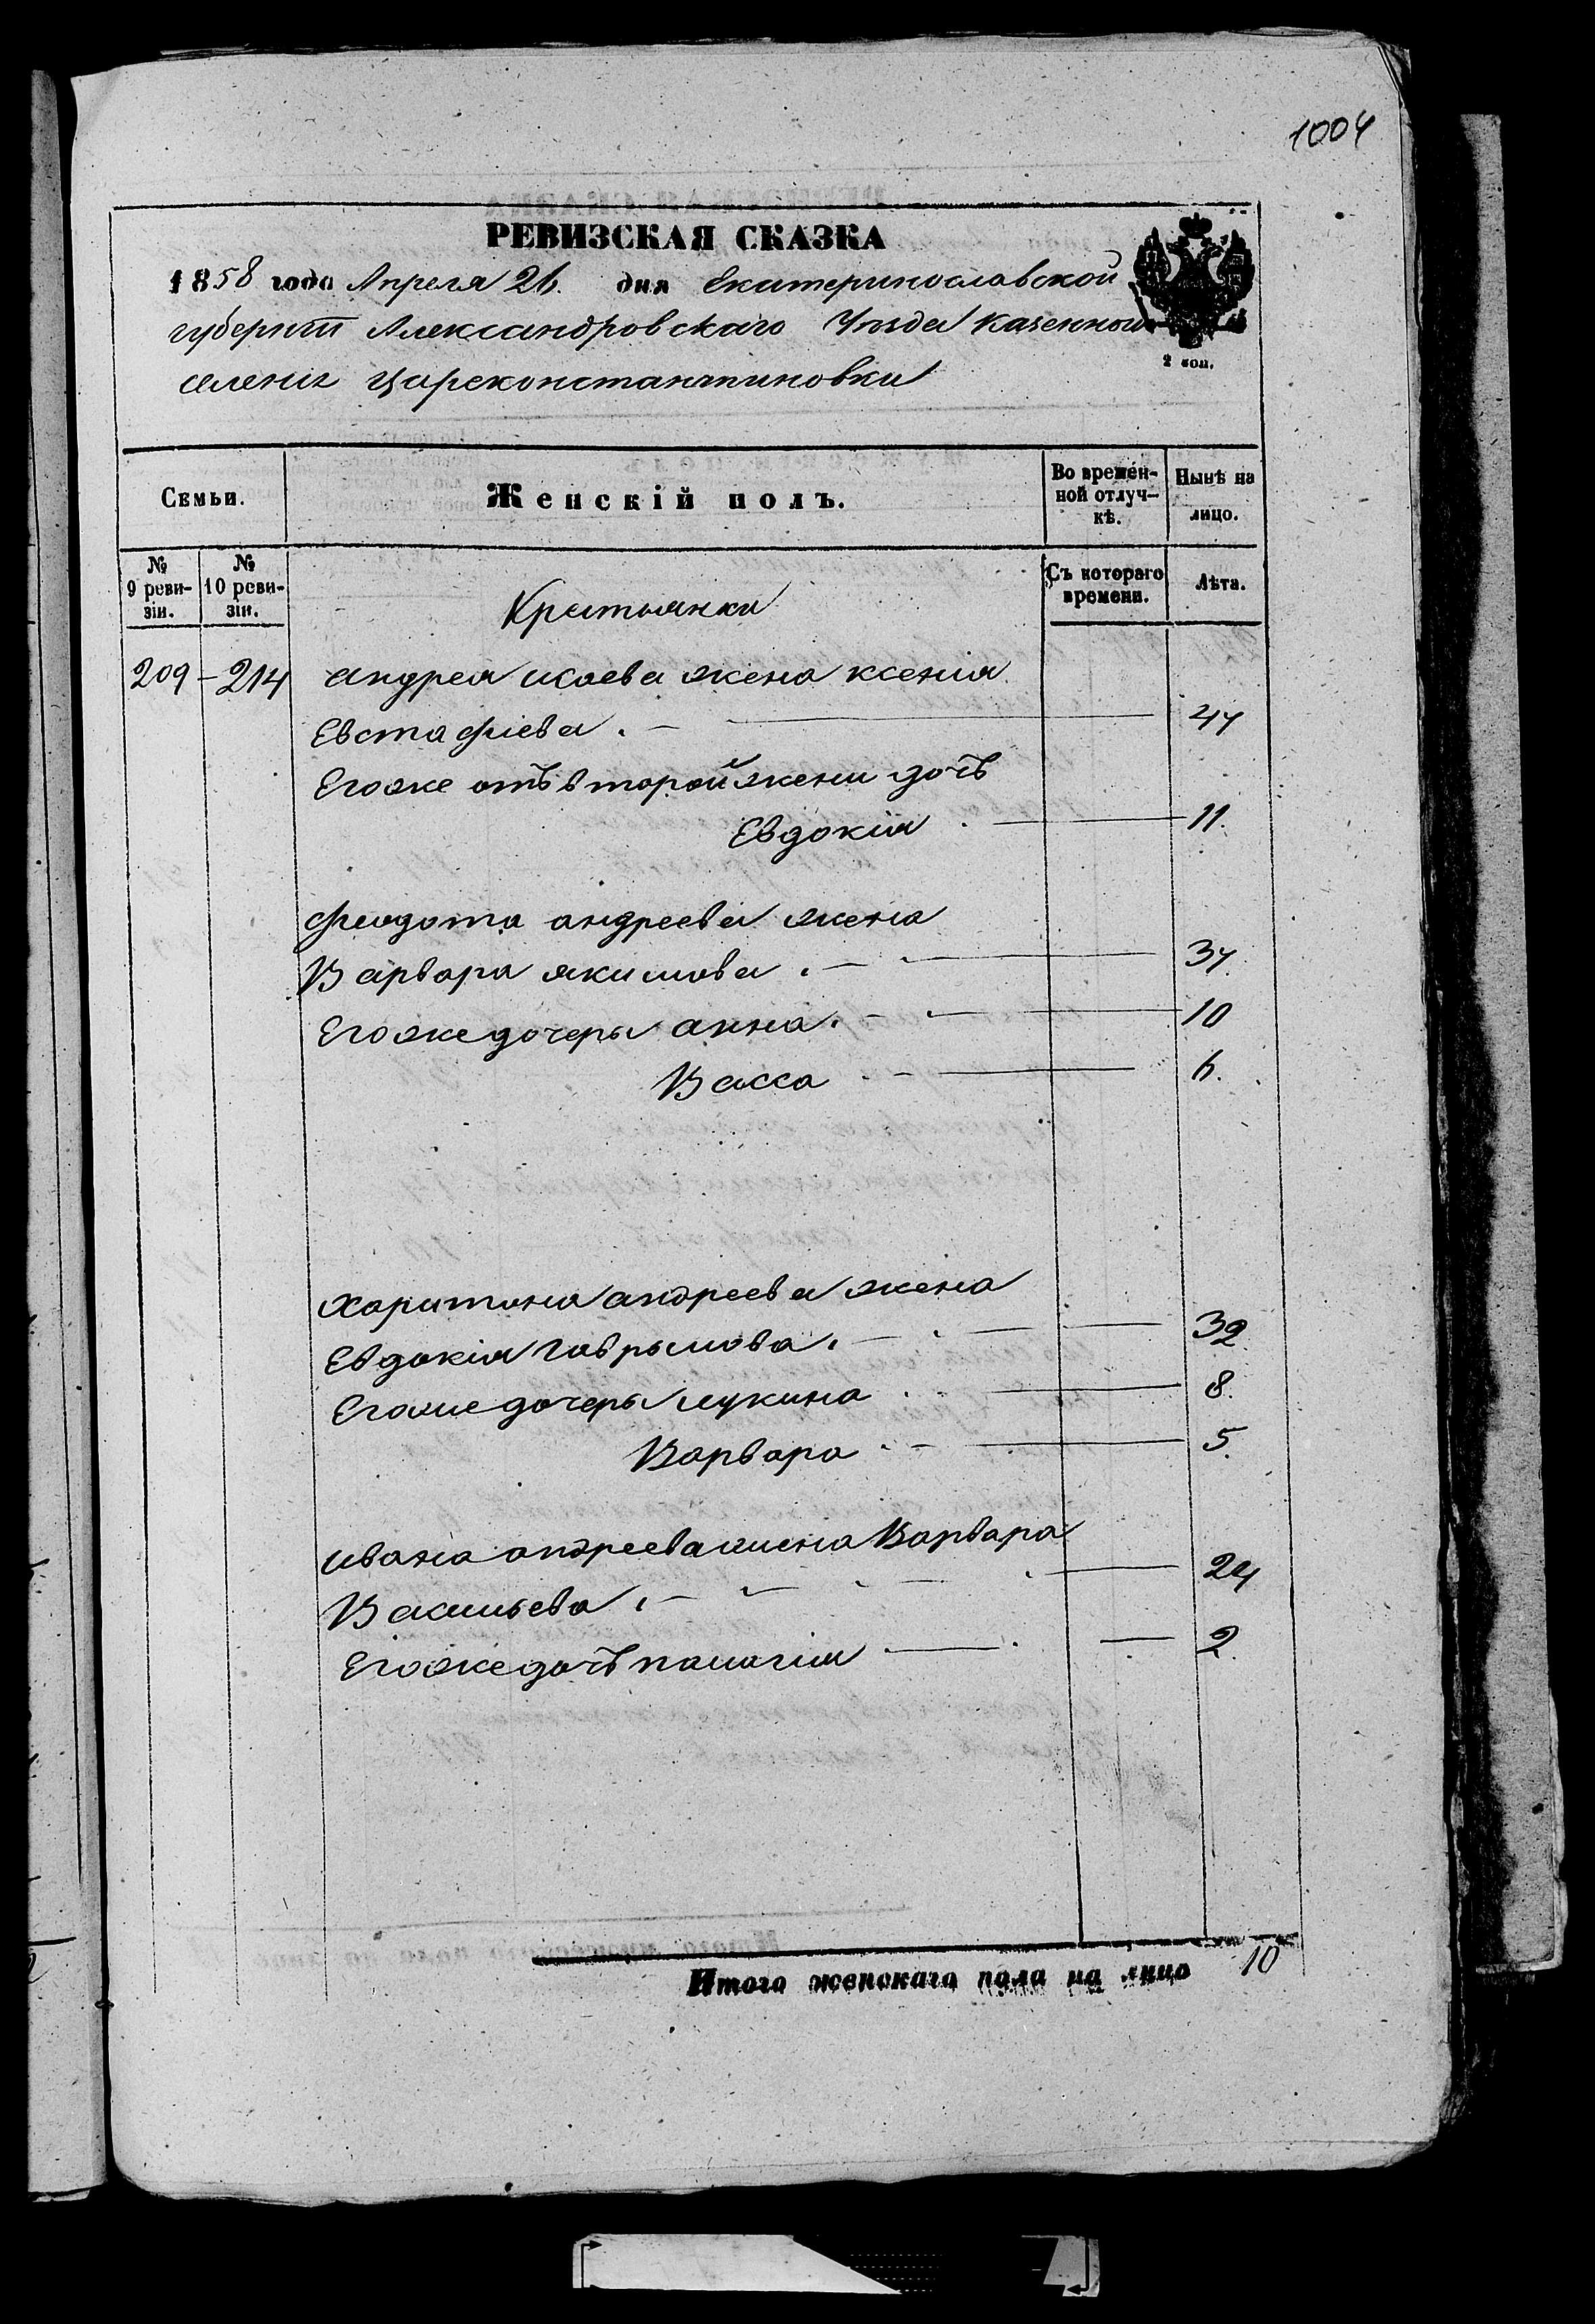 1004
РЕВИЗСКАЯ СКАЗКА
1858 года Апреля 26. дня Екатеринославской
губернии Александровскаго Уѣзда Казенном
селения Цареконстантиновки
2 коп.
Семьи.
Женскій полъ.
Во времен-
ной отлуч-
кѣ.
Нынѣ на
лицо.
№
9 реви-
зіи.
№
10 реви-
зіи.
Съ котораго
времени.
Лѣта.
Крестьянки
209 - 214 андрея исаева жена ксенія
Евстафіева . — 47
Егоже отъ второй жени дочъ
Евдокія . — 11.
феодота андреева жена
Варвара якимова . — 37.
Егоже дочеры анна . — 10
Васса . — 6.
харитона андреева жена
Евдокія Гаврылова . — 32
Егоже дочеры лукина . — 8.
Варвара . — 5.
ивана андреева жена Варвара
Васильева . — 24
Егоже дочъ пелагія — 2.
Итого женскаго пола на лицо 10